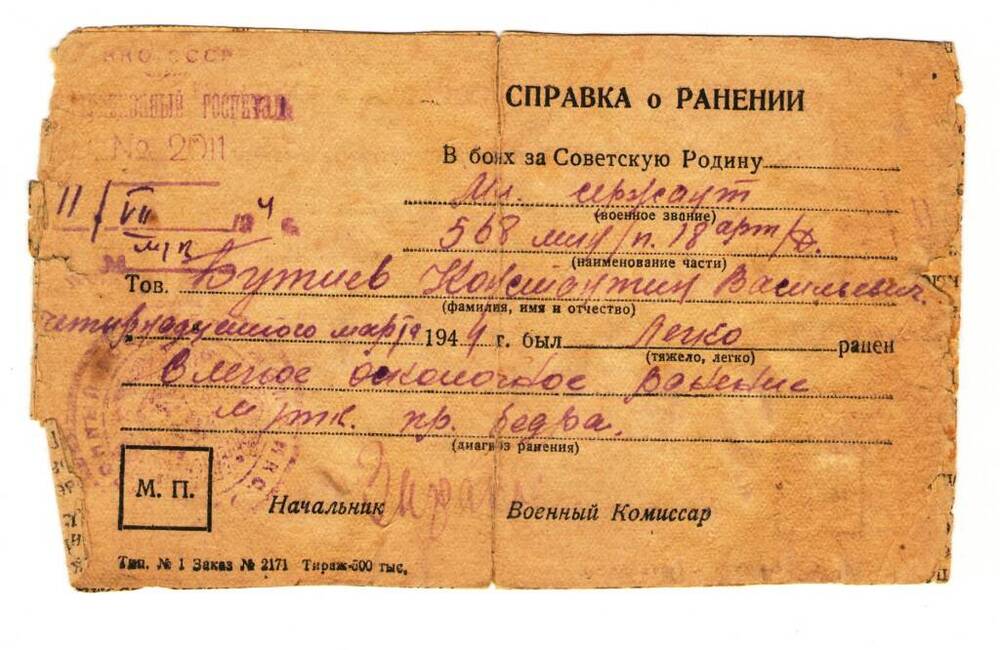 НКО СССР
ГОСПИТАЛЬ
№ 2011
11/VII 194 г.
№
СПРАВКА о РАНЕНИИ
В боях за Советскую Родину
Мл. сержант
(военное звание)
568 мин/п. 18 арт/д.
(наименование части)
Тов. Бутиев Константин Васильевич
(фамилия, имя и отчество)
четырнадцатого марта 1944 г. был легко ранен
(тяжело, легко)
Слепое осколочное ранение
м/тк. пр. бедра.
(диагноз ранения)
М. П.
Начальник
Военный Комиссар
Тип. № 1 Заказ № 2171 Тираж-500 тыс.